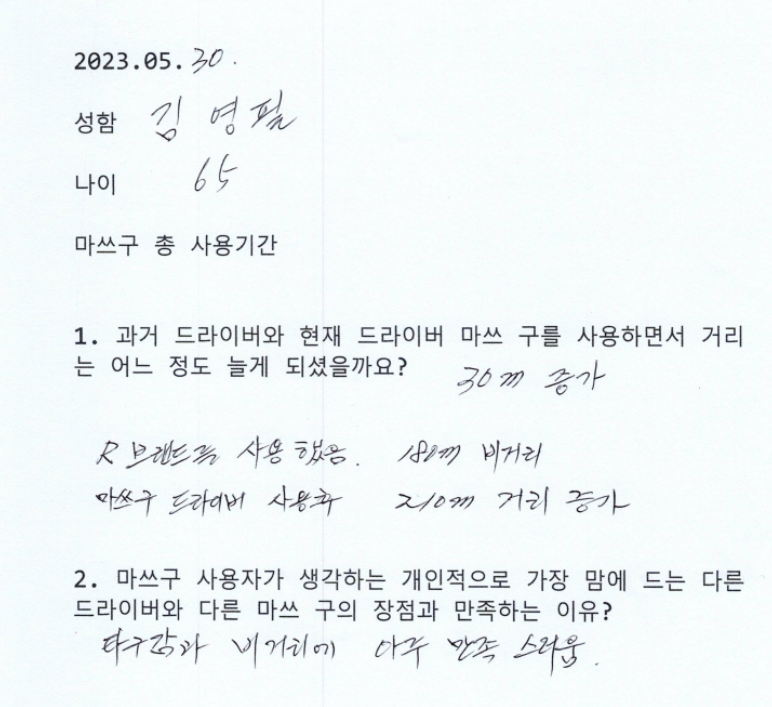 2023.05.30.
성함 김영필
나이 65
마쓰구 총 사용기간
1. 과거 드라이버와 현재 드라이버 마쓰 구를 사용하면서 거리
는 어느 정도 늘게 되셨을까요? 30m 증가
R 브랜드를 사용했음. 180m 비거리
마쓰구 드라이버 사용후 210m 거리 증가
2. 마쓰구 사용자가 생각하는 개인적으로 가장 맘에 드는 다른
드라이버와 다른 마쓰 구의 장점과 만족하는 이유?
타구감과 비거리에 아주 만족 스러움.